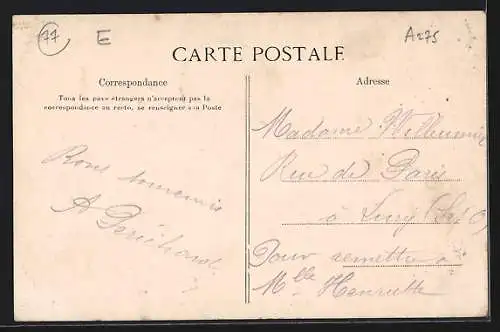 77
E
A275
CARTE POSTALE
Correspondance
Tous les pays étrangers n'acceptent pas la
correspondance au recto, se renseigner à la Poste
Bons souvenirs
A
Adresse
Madame
Rue de Paris
à
Pour remettre à
Mlle Henriette